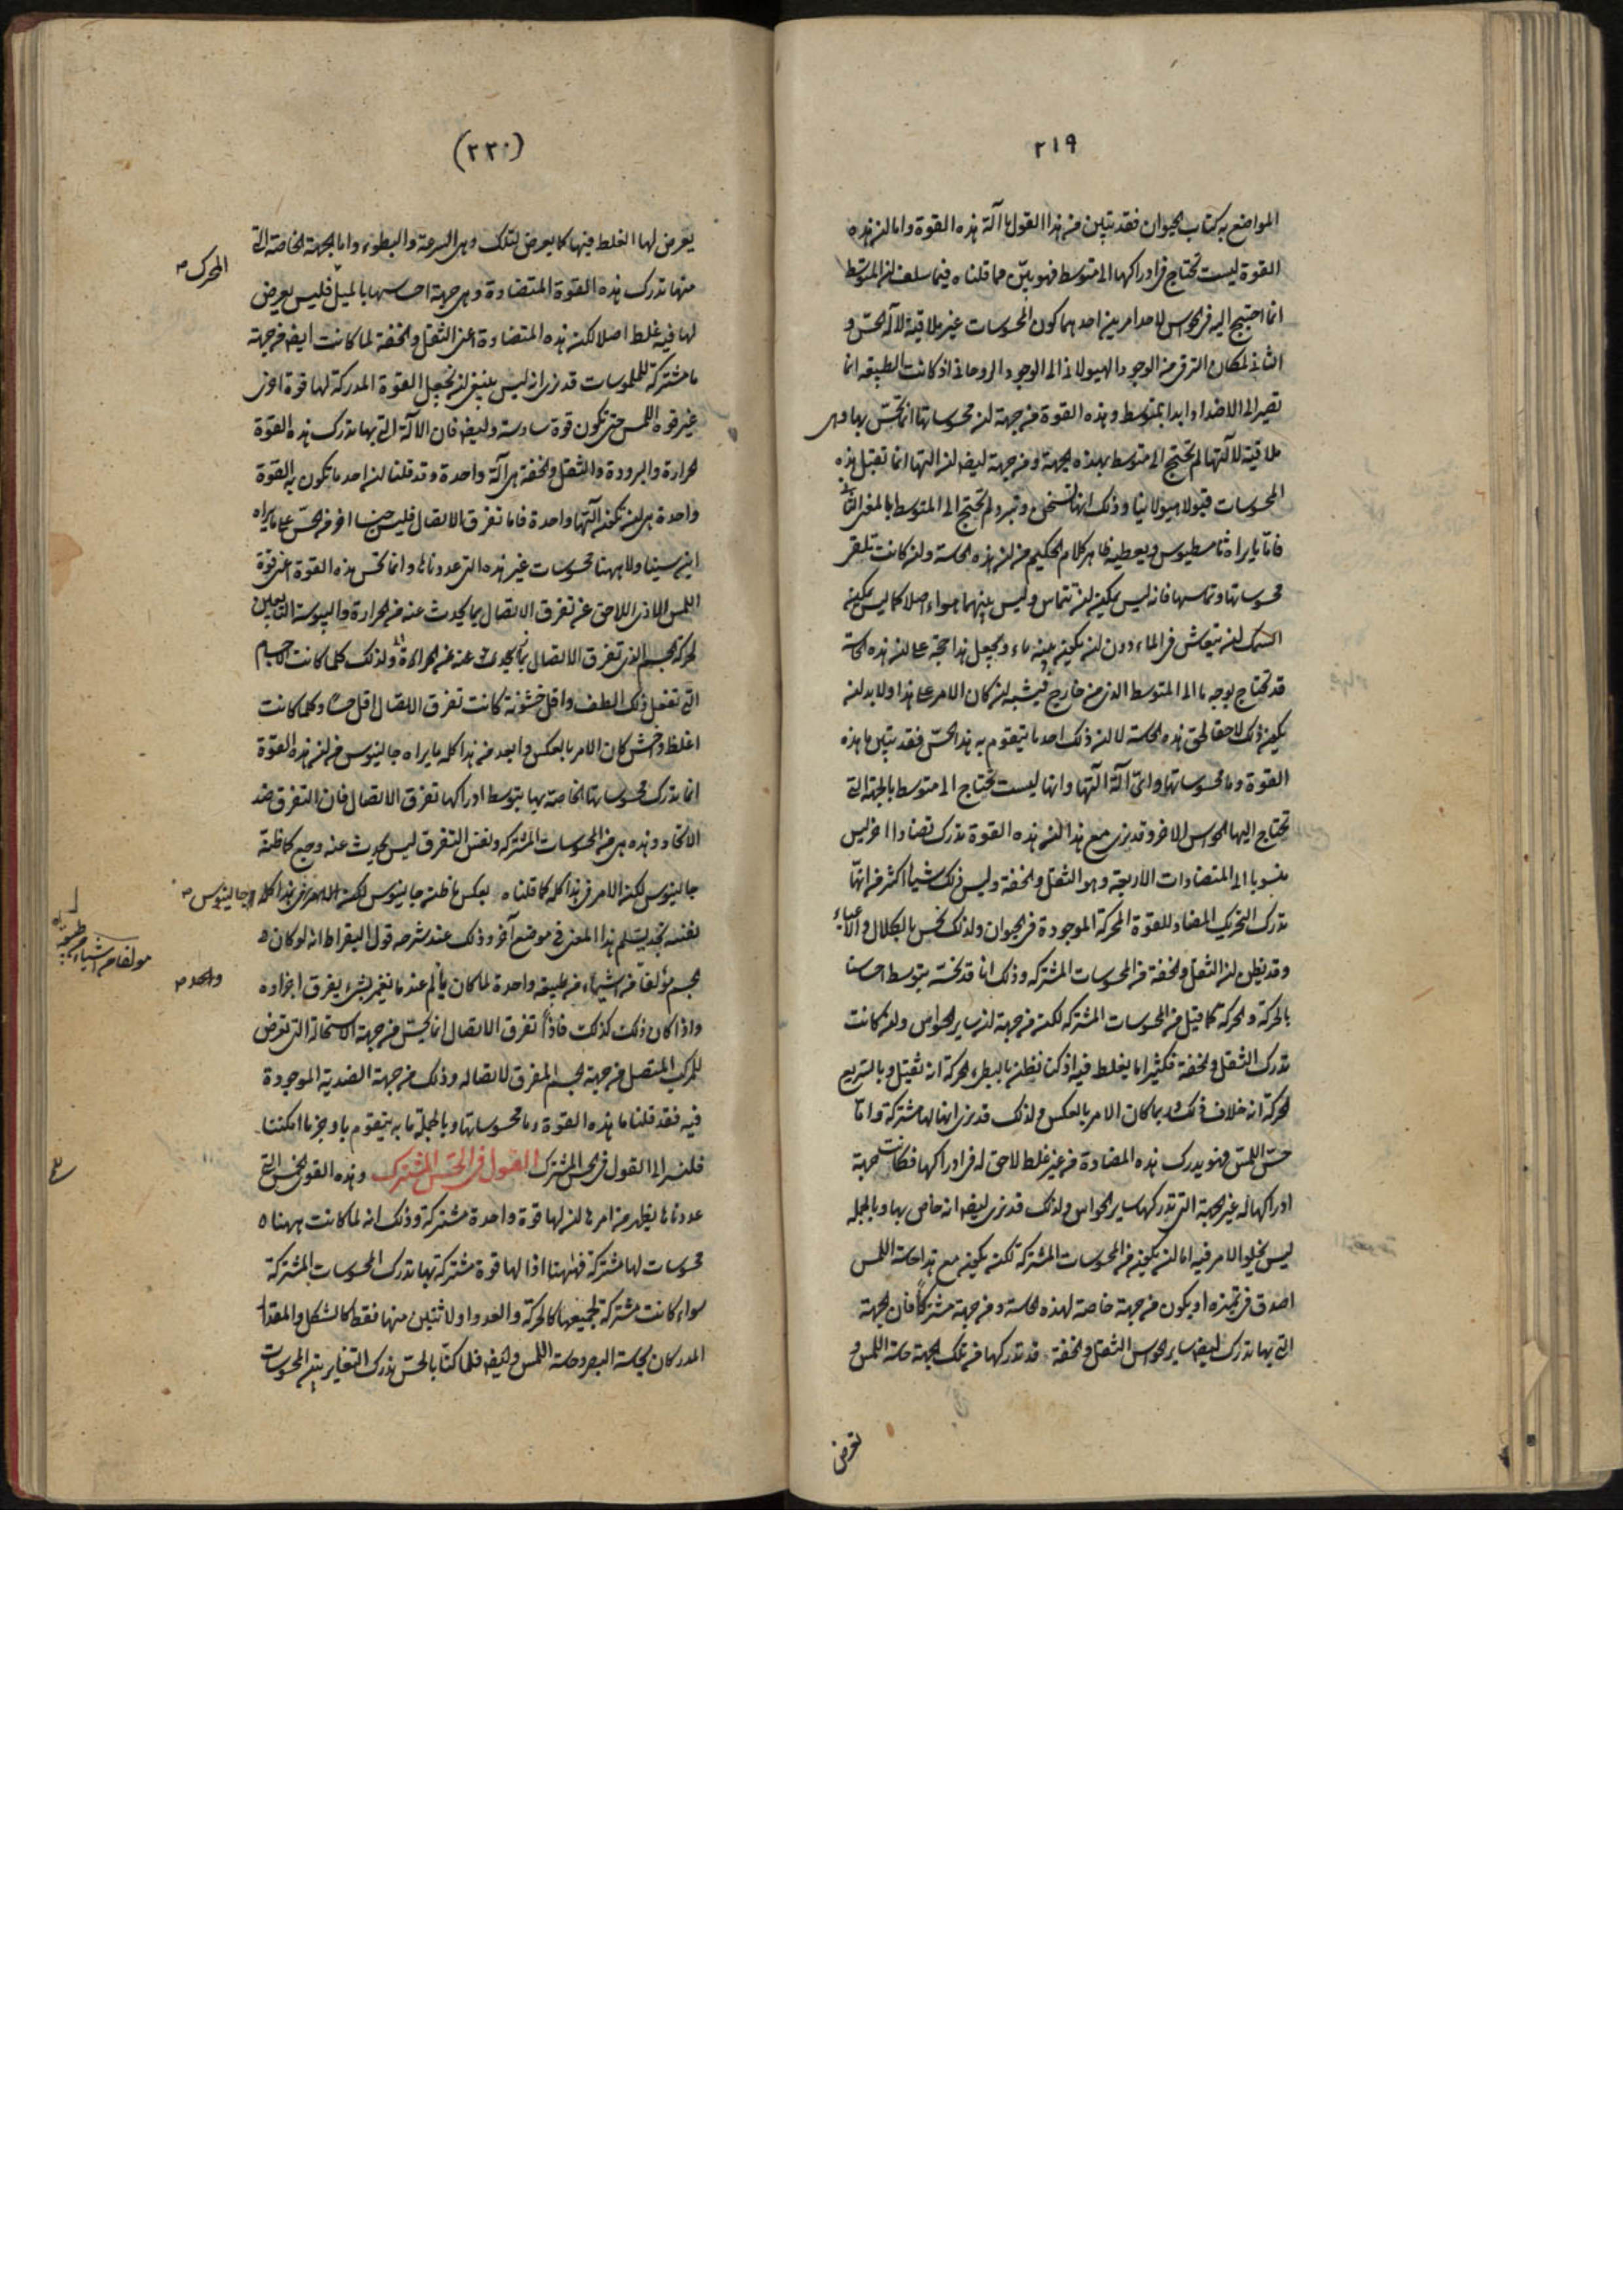 ٢١٩
المواضع به كتاب الحيوان فقد تبين من هذا القول ما آلة هذه القوة واما ان هذه
القوة ليست تحتاج في ادراكها الى متوسط فهو بين مما قلناه فيما سلف ان المتوسط
انما احتيج اليه في الحواس لاحد امرين احدهما كون المحسوسات غير ملاقية لآلة الحس و
الثاني لمكان الترقي من الوجود الهيولاني الى الوجود الروحاني اذ كانت الطبيعة انما
تصير الى الاضداد ابدا بمتوسط وهذه القوة من جهة ان محسوساتها انما تحس بها وهي
ملاقية لآلتها لم تحتج الى متوسط بهذه الجهة ومن جهة ايضا ان آلتها انما تقبل هذه
المحسوسات قبولا هيولانيا وذلك انها تسخن وتبرد لم تحتج الى المتوسط بالمعنى الثاني
فاما ما يراه ثامسطيوس ويعطيه ظاهر كلام الحكيم من ان هذه الحاسة وان كانت تلقى
محسوساتها وتماسها فانه ليس يمكن ان تتماس وليس بينهما هواء اصلا كما ليس يمكن
السمك ان يتعاش في الماء دون ان يكون بينه ماء ويجعل هذا حجة على ان هذه الحاسة
قد تحتاج بوجه ما الى المتوسط الذي من خارج فيشبه ان كان الامر على هذا ولا بد ان
يكون ذلك لاحقا لحق هذه الحاسة لا ان ذلك احد ما يتقوم به هذا الحس فقد تبين ما هذه
القوة وما محسوساتها واي آلة آلتها وانها ليست تحتاج الى متوسط بالجهة التي
تحتاج اليها الحواس الاخر وقد يرى مع هذا ان هذه القوة تدرك تضادا اخر ليس
منسوبا الى المتضادات الاربعة وهو الثقل والخفة وليس ذلك شيئا اكثر من انها
تدرك التحريك المضاد للقوة المحركة الموجودة في الحيوان ولذلك نحس بالكلال والاعياء
وقد يظن ان الثقل والخفة من المحسوسات المشتركة وذلك انا قد نحسه بتوسط احساسنا
بالحركة والحركة كما قيل من المحسوسات المشتركة لكن من جهة ان ساير الحواس وان كانت
تدرك الثقل والخفة فكثيرا ما يغلط فيه اذ كنا نظن بالبطيء الحركة انه ثقيل وبالسريع
الحركة انه خلاف ذلك وربما كان الامر بالعكس ولذلك قد نرى انها لها مشتركة واما
حس اللمس فهو يدرك هذه المضادة من غير غلط لاحق له في ادراكها فكانت جهة
ادراكها له غير الجهة التي تدركها ساير الحواس ولذلك قد نرى ايضا انه خاص بها وبالجملة
ليس يخلو الامر فيه اما ان يكون من المحسوسات المشتركة لكن يكون مع هذا حاسة اللمس
اصدق في تميزه او يكون من جهة خاصة لهذه الحاسة ومن جهة مشتركا فان الجهة
التي بها تدرك ايضا ساير الحواس الثقل والخفة قد تدركها من تلك الجهة حاسة اللمس و
تعرض
(٢٢٠)
يعرض لها الغلط فيها كما يعرض لتلك وهي السرعة والبطوء واما الجهة الخاصة التي
منها تدرك هذه القوة المتضادة وهي جهة احساسها بالميل فليس يعرض
المحرك ص
لها فيه غلط اصلا لكن هذه المتضادة اعني الثقل والخفة لما كانت ايضا من جهة
ما مشتركة للملموسات قد نرى انه ليس ينبغي ان نجعل القوة المدركة لها قوة اخرى
غير قوة اللمس حتى تكون قوة سادسة وايضا فان الآلة التي بها تدرك هذه القوة
الحرارة والبرودة والثقل والخفة هي آلة واحدة وقد قلنا ان احد ما تكون به القوة
واحدة هي ان تكون آلتها واحدة فاما تفرق الاتصال فليس جنسا اخر من الحس على ما يراه
ابن سينا ولا ههنا محسوسات غير هذه التي عددناها وانما تحس هذه القوة اعني قوة
اللمس الاذى اللاحق عن تفرق الاتصال بما يحدث عنه من الحرارة واليبوسة التابعين
لحركة الجسم الذي تفرق الاتصال بما يحدث عنه عن الحرارة ولذلك كلما كانت الاجسام
التي تفعل ذلك الطف واقل خشونة كانت تفرق الاتصال اقل حسا وكلما كانت
اغلظ واخشن كان الامر بالعكس وابعد من هذا كله ما يراه جالينوس من ان هذه القوة
انما تدرك محسوساتها الخاصة بها بتوسط ادراكها تفرق الاتصال فان التفرق ضد
الاتحاد وهذه هي من المحسوسات المشتركة ونفس التفرق ليس يحدث عنه وجع كما ظنه
جالينوس لكن الامر في هذا كله كما قلناه بعكس ما ظنه جالينوس لكن هذا كله وجالينوس ص
نفسه نجد يسلم هذا المعنى في موضع آخر وذلك عند شرحه قول ابقراط انه لو كان
مولفا من اشياء طبيعة
الجسم مؤلفا من اشياء من طبيعة واحدة لما كان يألم عند ما ينغمز بشيء يفرق اجزاءه
واحدة ص
واذا كان ذلك كذلك فاذا تفرق الاتصال انما يحس من جهة الاستحالة التي تعرض
للمركب المتصل من جهة الجسم المفرق لاتصاله وذلك من جهة الضدية الموجودة
فيه فقد قلنا ما هذه القوة وما محسوساتها وبالجملة ما به يتقوم باوجز ما امكننا
فلنسر الى القول في الحس المشترك القول في الحس المشترك وهذه القوى الخمس التي
عددناها يظهر من امرها ان لها قوة واحدة مشتركة وذلك انه لما كانت ههنا
محسوسات لها مشتركة فههنا اذا لها قوة مشتركة بها تدرك المحسوسات المشتركة
سواء كانت مشتركة لجميعها كالحركة والعدد او لاثنين منها فقط كالشكل والمقدار
المدركان بحاسة البصر وحاسة اللمس وايضا فلما كنا بالحس ندرك التغاير بين المحسوسات